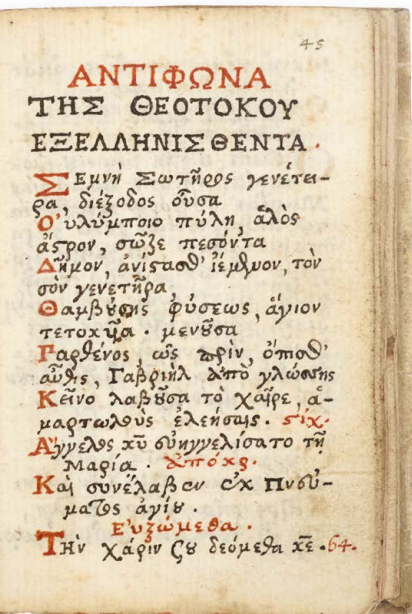 45
ΑΝΤΙΦΩΝΑ
ΤΗΣ ΘΕΟΤΟΚΟΥ
ΕΞΕΛΛΗΝΙΣΘΕΝΤΑ.
Σεμνὴ Σωτῆρος γενέτει-
ρα, διέξοδος οὖσα
Οὐλύμποιο πύλη, ἁλὸς
ἄστρον, σῶζε πεσόντα
Δῆμον, ἀνίστασθ' ἱέμενον, τὸν
σὸν γενετῆρα
Θαμβούσης φύσεως, ἅγιον
τετοκυῖα. μένουσα
Παρθένος, ὡς πρὶν, ὄπισθ'
αὖθις, Γαβριὴλ ἀπὸ γλώσσης
Κεῖνο λαβοῦσα τὸ χαῖρε, ἁ-
μαρτωλοὺς ἐλεήσαις. στίχ.
Ἄγγελος κυ εὐηγγελίσατο τῇ
Μαρίᾳ. Ἀπόκρ.
Καὶ συνέλαβεν ἐκ Πνεύ-
ματος ἁγίου.
Εὐξώμεθα.
Τὴν χάριν σου δεόμεθα κε. 64.